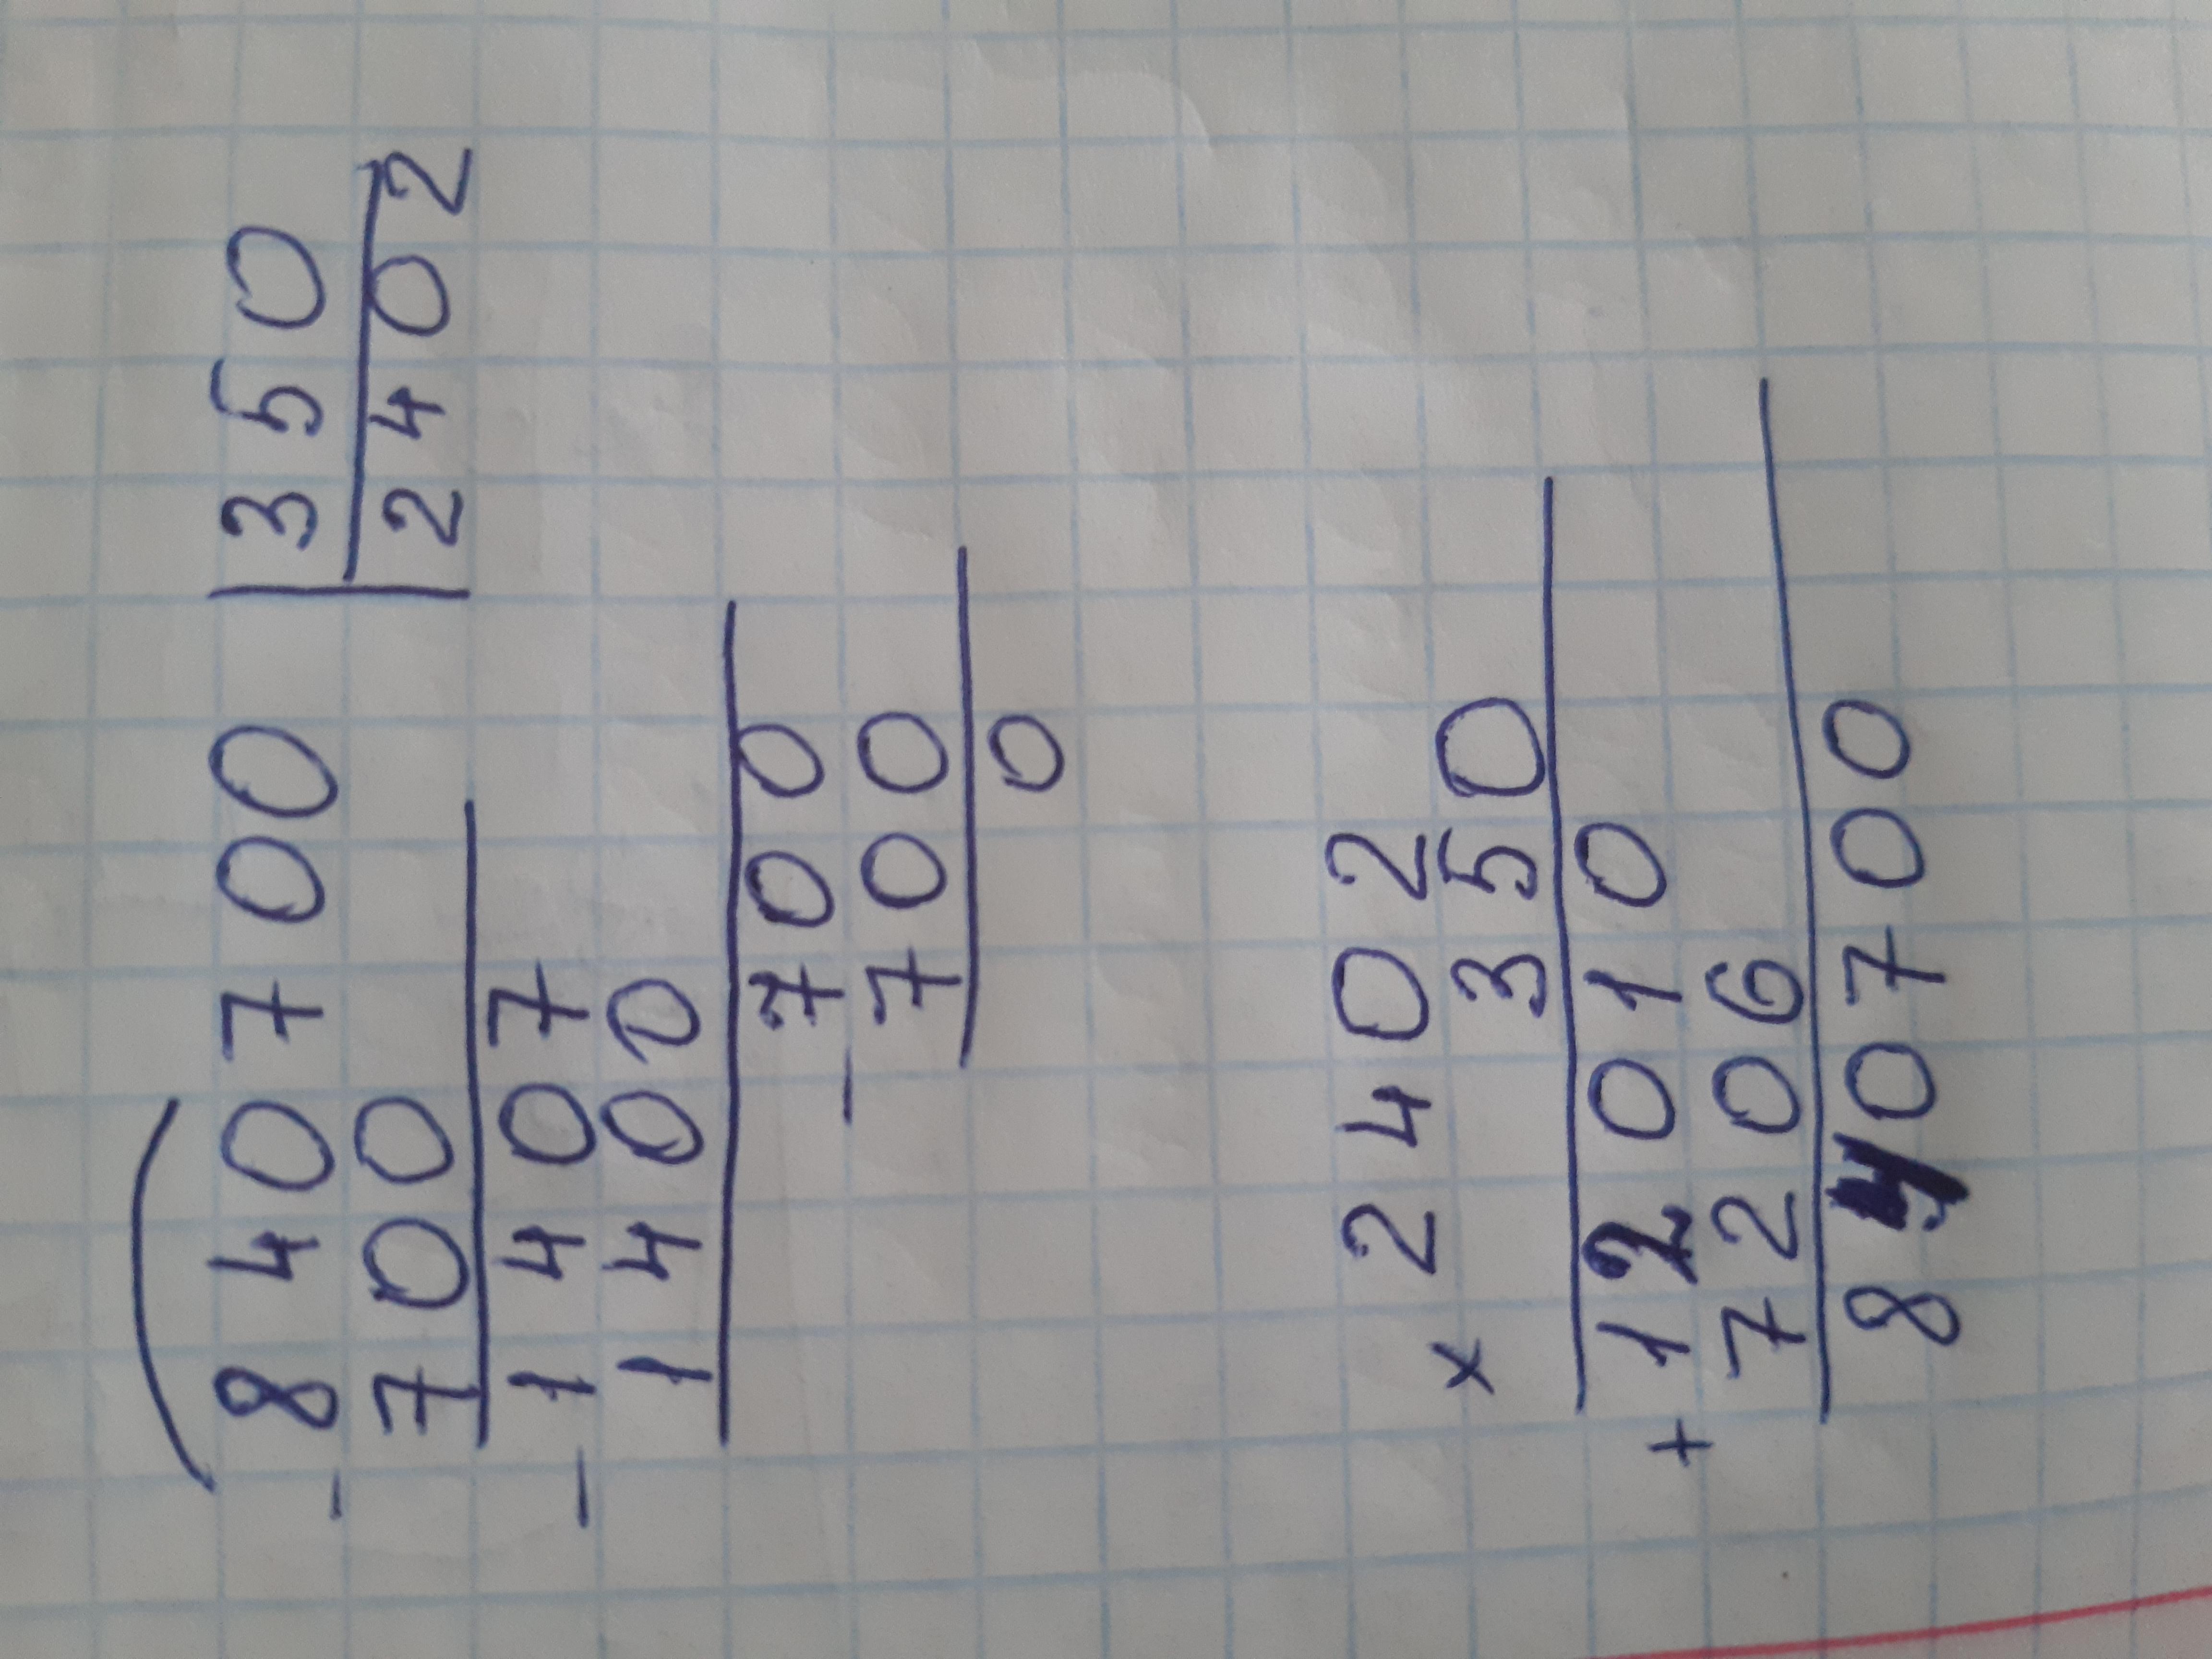 840700 | 350
- 700 | 2402
- 1407
1400
- 700
700
0
2402
× 350
12010
+ 7206
840700